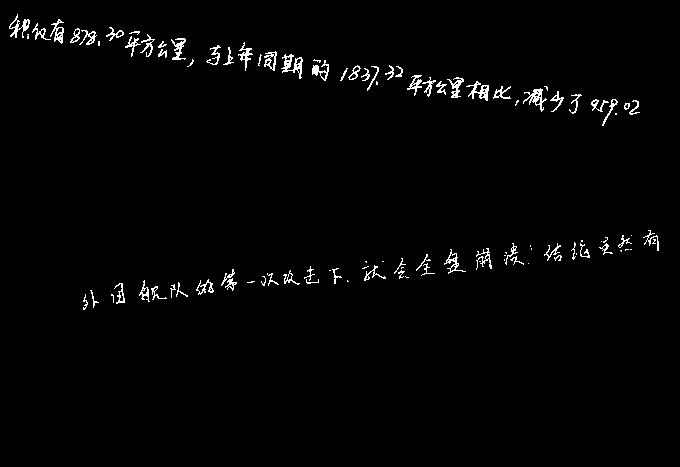 积仅有878.30平方公里，与上年同期的1837.32平方公里相比，减少了959.02
外国舰队的第一次攻击下、就会全盘崩溃！结论竟然有